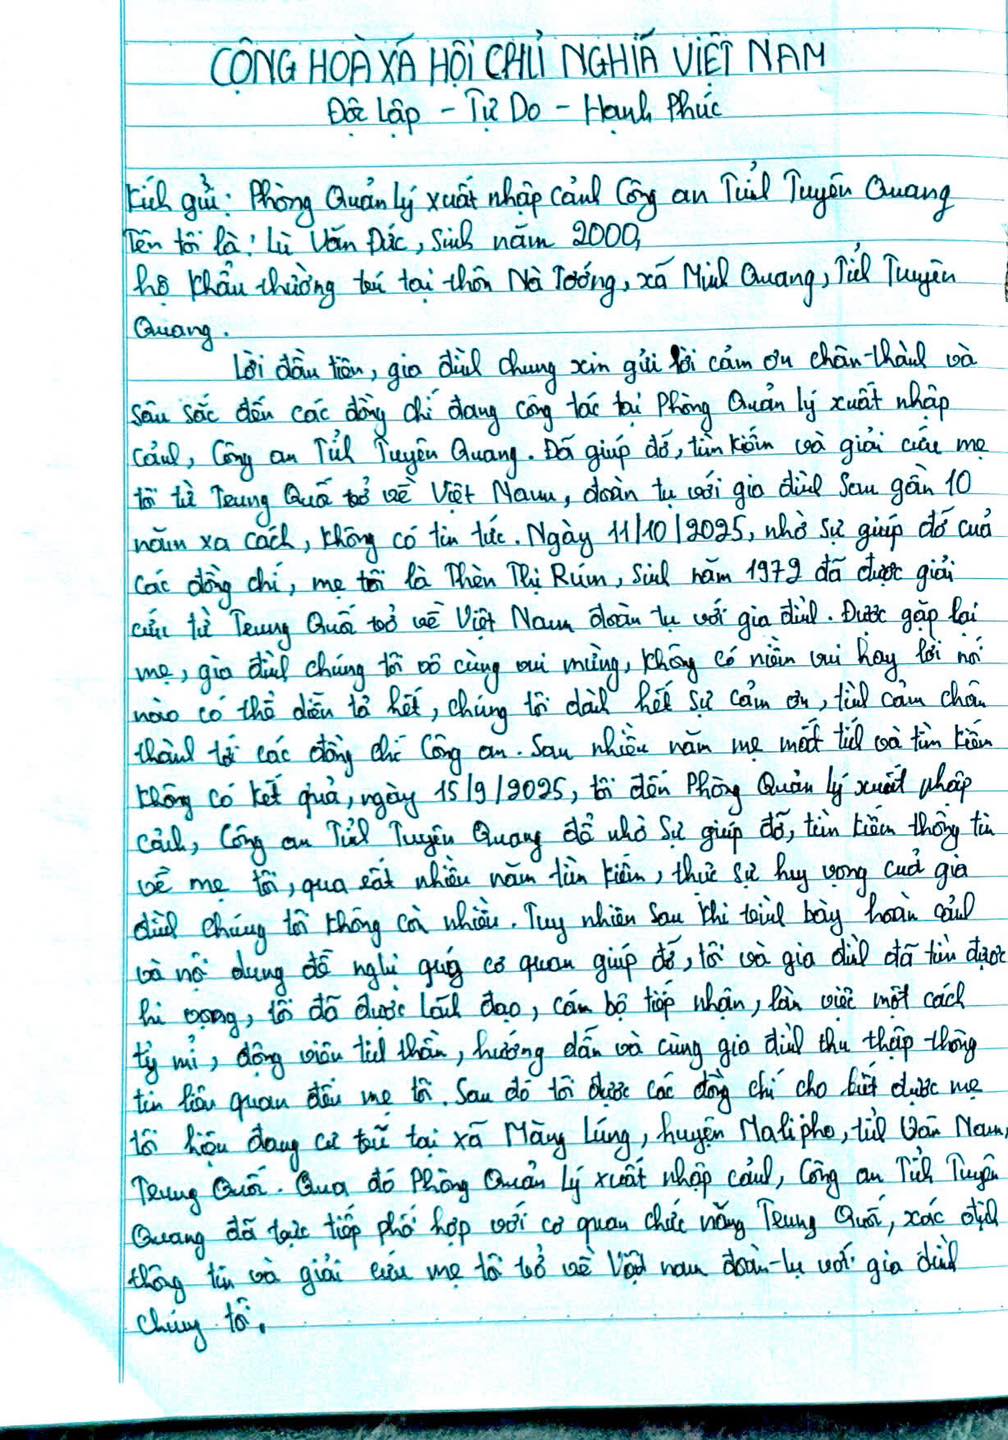 CỘNG HOÀ XÃ HỘI CHỦ NGHĨA VIỆT NAM
Độc Lập - Tự Do - Hạnh Phúc
Kính gửi: Phòng Quản Lý xuất nhập cảnh Công an Tỉnh Tuyên Quang
Tên tôi là: Lù Văn Đức, Sinh năm 2000,
hộ khẩu thường trú tại thôn Nà Tướng, xã Minh Quang, Tỉnh Tuyên
Quang.
Lời đầu tiên, gia đình chung xin gửi lời cảm ơn chân thành và
sâu sắc đến các đồng chí đang công tác tại Phòng Quản lý xuất nhập
cảnh, Công an Tỉnh Tuyên Quang. Đã giúp đỡ, tìm kiếm và giải cứu mẹ
tôi từ Trung Quốc trở về Việt Nam, đoàn tụ với gia đình sau gần 10
năm xa cách, không có tin tức. Ngày 11/10/2025, nhờ sự giúp đỡ cuả
các đồng chí, mẹ tôi là Thèn Thị Rúm, Sinh năm 1979 đã được giải
cứu từ Trung Quốc trở về Việt Nam đoàn tụ với gia đình. Được gặp lại
mẹ, gia đình chúng tôi vô cùng vui mừng, không có niềm vui hay lời nói
nào có thể diễn tả hết, chúng tôi dành hết sự cảm ơn, tình cảm chân
thành tới các đồng chí Công an. Sau nhiều năm mẹ mất tích và tìm kiếm
không có kết quả, ngày 15/9/2025, tôi đến Phòng Quản lý xuất nhập
cảnh, Công an Tỉnh Tuyên Quang để nhờ sự giúp đỡ, tìm kiếm thông tin
về mẹ tôi, qua rất nhiều năm tìm kiếm, thực sự hy vọng cuả gia
đình chúng tôi không còn nhiều. Tuy nhiên sau khi trình bày hoàn cảnh
và nội dung đề nghị quý cơ quan giúp đỡ, tôi và gia đình đã tìm được
hi vọng, tôi đã được lãnh đạo, cán bộ tiếp nhận, làm việc một cách
tỷ mỉ, động viên tinh thần, hướng dẫn và cùng gia đình thu thập thông
tin liên quan đến mẹ tôi. Sau đó tôi được các đồng chí cho biết được mẹ
tôi hiện đang cư trú tại xã Mãng Lúng, huyện Malipho, tỉnh Vân Nam,
Trung Quốc. Qua đó Phòng Quản Lý xuất nhập cảnh, Công an Tỉnh Tuyên
Quang đã trực tiếp phối hợp với cơ quan chức năng Trung Quốc, xác định
thông tin và giải cứu mẹ tôi trở về Việt nam đoàn tụ với gia đình
chúng tôi.